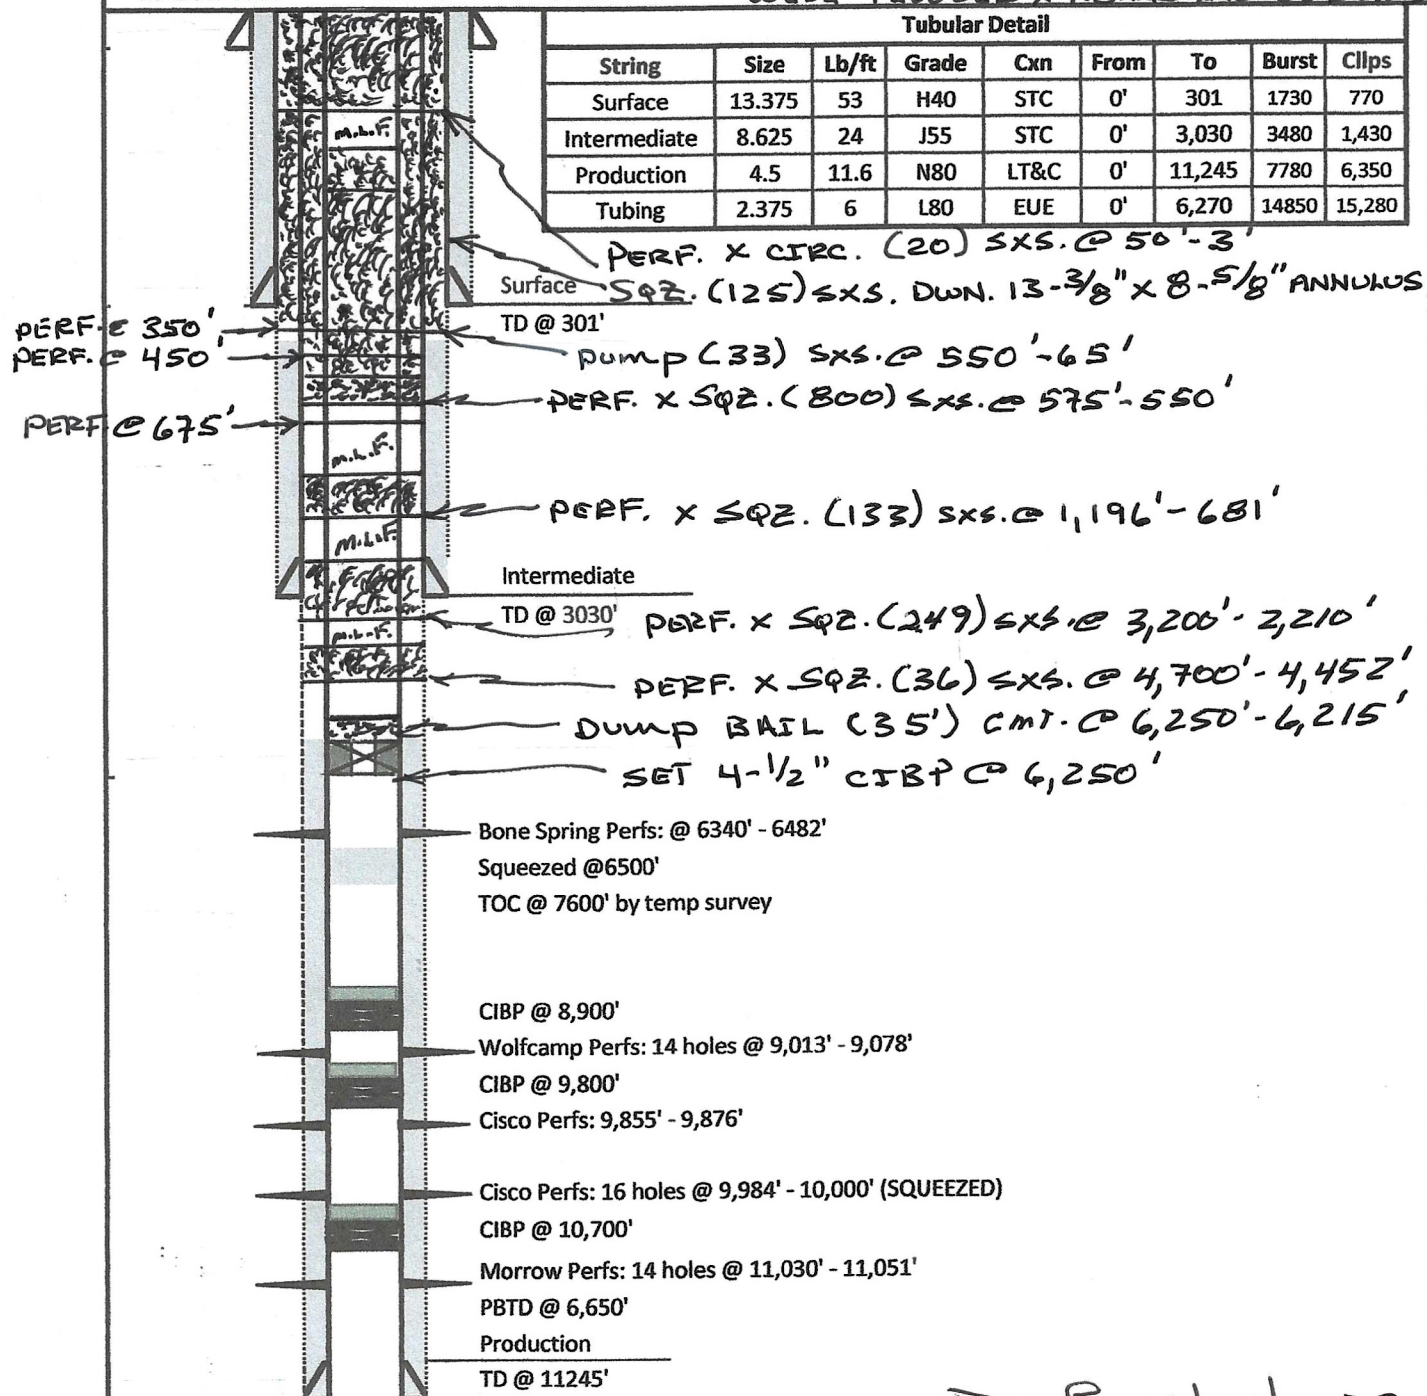 Tubular Detail
String Size Lb/ft Grade Cxn From To Burst Cllps
Surface 13.375 53 H40 STC 0' 301 1730 770
Intermediate 8.625 24 J55 STC 0' 3,030 3480 1,430
Production 4.5 11.6 N80 LT&C 0' 11,245 7780 6,350
Tubing 2.375 6 L80 EUE 0' 6,270 14850 15,280
M.L.F.
PERF. X CIRC. (20) SXS. @ 50'-3'
Surface
SQZ. (125) SXS. DWN. 13-3/8" X 8-5/8" ANNULUS
PERF. @ 350'
TD @ 301'
PERF. @ 450'
PUMP (33) SXS. @ 550'-65'
PERF. X SQZ. (800) SXS. @ 575'-550'
PERF @ 675'
M.L.F.
PERF. X SQZ. (133) SXS. @ 1,196'-681'
M.L.F.
Intermediate
TD @ 3030'
PERF. X SQZ. (249) SXS. @ 3,200'-2,210'
M.L.F.
PERF. X SQZ. (36) SXS. @ 4,700'-4,452'
DUMP BAIL (35') CMT. @ 6,250'-6,215'
SET 4-1/2" CIBP @ 6,250'
Bone Spring Perfs: @ 6340' - 6482'
Squeezed @6500'
TOC @ 7600' by temp survey
CIBP @ 8,900'
Wolfcamp Perfs: 14 holes @ 9,013' - 9,078'
CIBP @ 9,800'
Cisco Perfs: 9,855' - 9,876'
Cisco Perfs: 16 holes @ 9,984' - 10,000' (SQUEEZED)
CIBP @ 10,700'
Morrow Perfs: 14 holes @ 11,030' - 11,051'
PBTD @ 6,650'
Production
TD @ 11245'